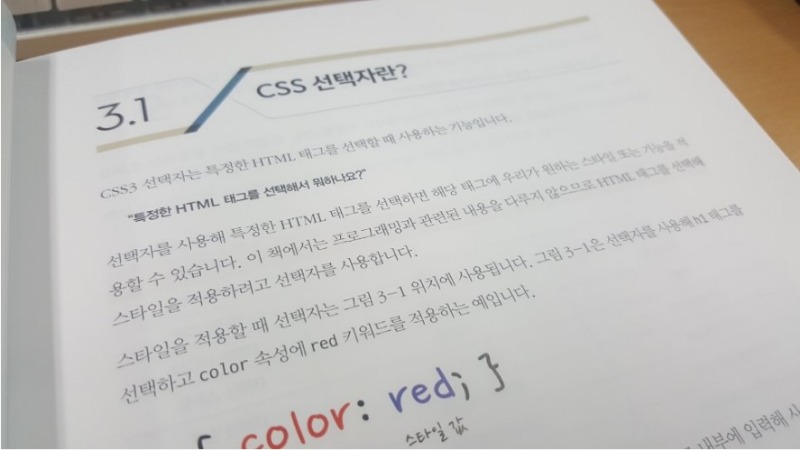 3.1
CSS 선택자란?
CSS3 선택자는 특정한 HTML 태그를 선택할 때 사용하는 기능입니다.
"특정한 HTML 태그를 선택해서 뭐하나요?"
선택자를 사용해 특정한 HTML 태그를 선택하면 해당 태그에 우리가 원하는 스타일 또는 기능을 적
용할 수 있습니다. 이 책에서는 프로그래밍과 관련된 내용을 다루지 않으므로 HTML 태그를 선택해
스타일을 적용하려고 선택자를 사용합니다.
스타일을 적용할 때 선택자는 그림 3-1 위치에 사용됩니다. 그림 3-1은 선택자를 사용해 h1 태그를
선택하고 color 속성에 red 키워드를 적용하는 예입니다.
{ color: red; }
스타일 값
내부에 입력해